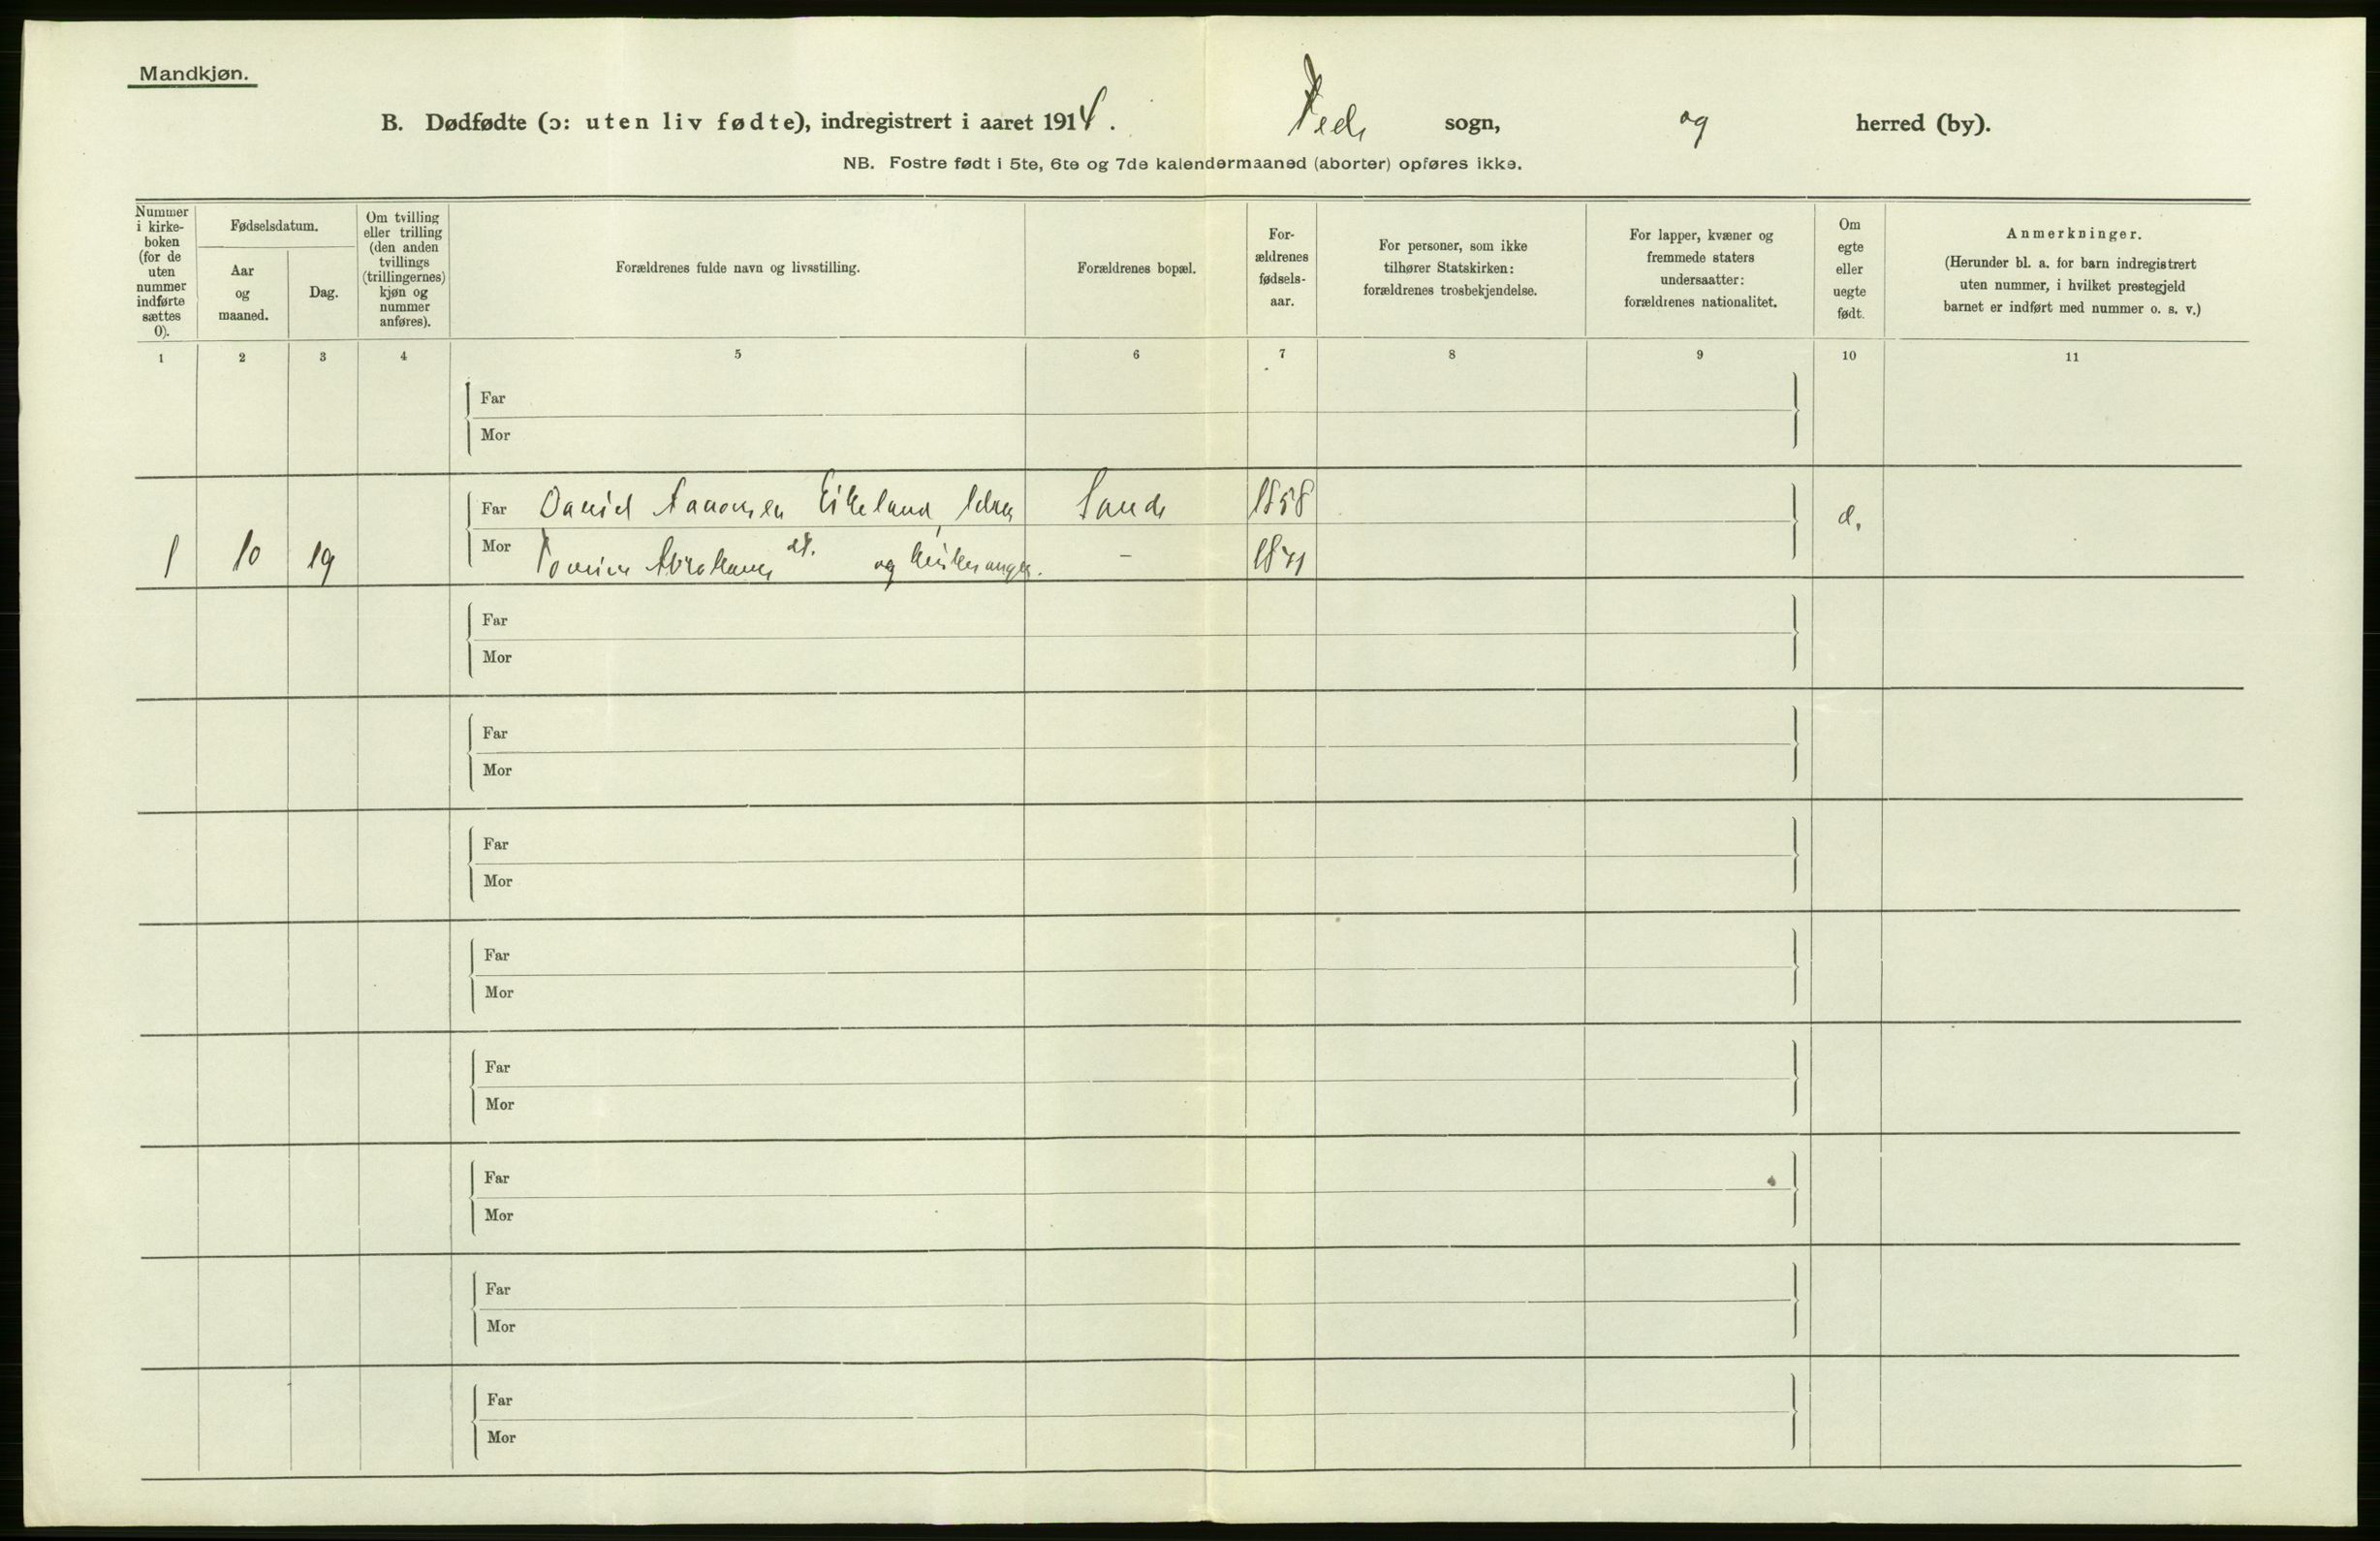 Mandkjøn.
B. Dødfødte (ɔ: uten liv fødte), indregistrert i aaret 1914. sogn, og herred (by).
NB. Fostre født i 5te, 6te og 7de kalendermaaned (aborter) opføres ikke.
Nummer
i kirke-
boken
(for de
uten
nummer
indførte
sættes
0).
Fødselsdatum.
Aar
og
maaned.
Dag.
Om tvilling
eller trilling
(den anden
tvillings
(trillingernes)
kjøn og
nummer
anføres).
Forældrenes fulde navn og livsstilling.
Forældrenes bopæl.
For-
ældrenes
fødsels-
aar.
For personer, som ikke
tilhører Statskirken:
forældrenes trosbekjendelse.
For lapper, kvæner og
fremmede staters
undersaatter:
forældrenes nationalitet.
Om
egte
eller
uegte
født.
Anmerkninger.
(Herunder bl. a. for barn indregistrert
uten nummer, i hvilket prestegjeld
barnet er indført med nummer o. s. v.)
1 2 3 4 5 6 7 8 9 10 11
Far
Mor
Far Daniel Aanonsen Eikeland, Sande 1858
1 10 19 Mor og – 1871
Far
Mor
Far
Mor
Far
Mor
Far
Mor
Far
Mor
Far
Mor
Far
Mor
Far
Mor